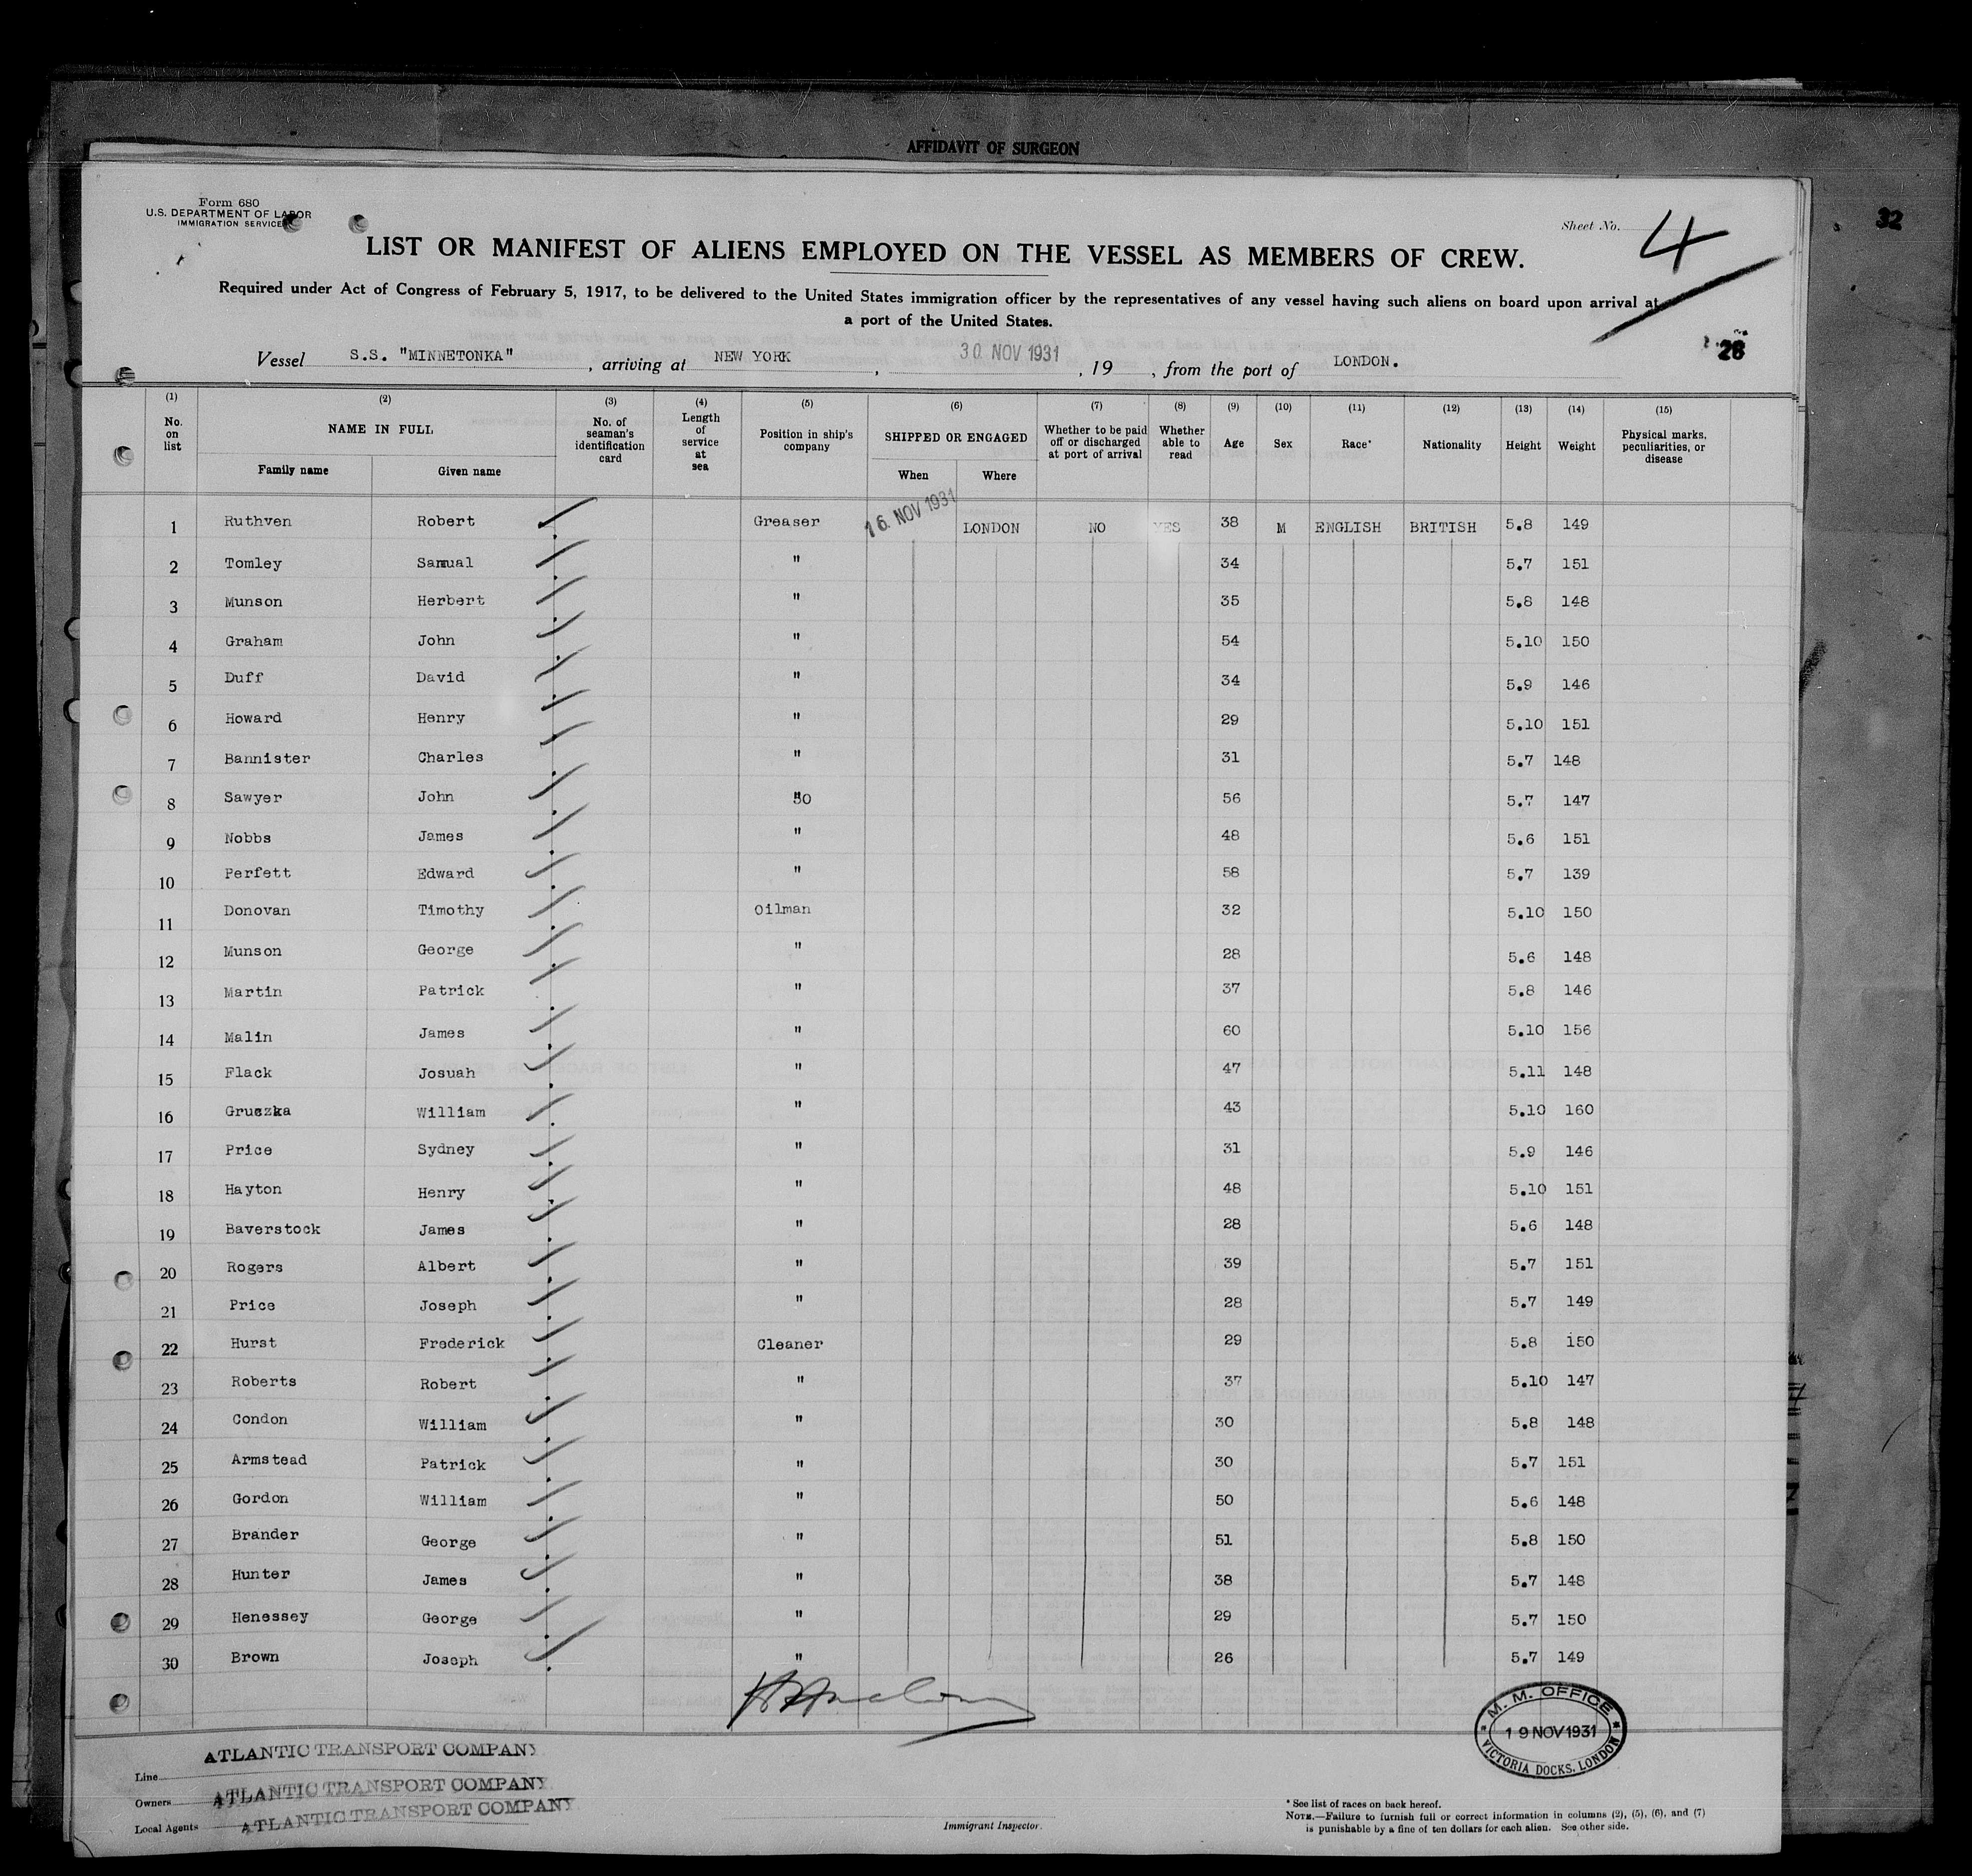 AFFIDAVIT OF SURGEON
32
Form 680
U.S. DEPARTMENT OF LABOR
IMMIGRATION SERVICE
Sheet No. 4
LIST OR MANIFEST OF ALIENS EMPLOYED ON THE VESSEL AS MEMBERS OF CREW.
Required under Act of Congress of February 5, 1917, to be delivered to the United States immigration officer by the representatives of any vessel having such aliens on board upon arrival at
a port of the United States.
28
Vessel S.S. "MINNETONKA" , arriving at NEW YORK , 30 NOV 1931 , 19 , from the port of LONDON.
(1) (2) (3) (4) (5) (6) (7) (8) (9) (10) (11) (12) (13) (14) (15)
No. on list NAME IN FULL No. of seaman's identification card Length of service at sea Position in ship's company SHIPPED OR ENGAGED Whether to be paid off or discharged at port of arrival Whether able to read Age Sex Race* Nationality Height Weight Physical marks, peculiarities, or disease
Family name Given name When Where
1 Ruthven Robert Greaser 16 NOV 1931 LONDON NO YES 38 M ENGLISH BRITISH 5.8 149
2 Tomley Samual " 34 5.7 151
3 Munson Herbert " 35 5.8 148
4 Graham John " 54 5.10 150
5 Duff David " 34 5.9 146
6 Howard Henry " 29 5.10 151
7 Bannister Charles " 31 5.7 148
8 Sawyer John " 56 5.7 147
9 Nobbs James " 48 5.6 151
10 Perfett Edward " 58 5.7 139
11 Donovan Timothy Oilman 32 5.10 150
12 Munson George " 28 5.6 148
13 Martin Patrick " 37 5.8 146
14 Malin James " 60 5.10 156
15 Flack Josuah " 47 5.11 148
16 Gruszka William " 43 5.10 160
17 Price Sydney " 31 5.9 146
18 Hayton Henry " 48 5.10 151
19 Baverstock James " 28 5.6 148
20 Rogers Albert " 39 5.7 151
21 Price Joseph " 28 5.7 149
22 Hurst Frederick Cleaner 29 5.8 150
23 Roberts Robert " 37 5.10 147
24 Condon William " 30 5.8 148
25 Armstead Patrick " 30 5.7 151
26 Gordon William " 50 5.6 148
27 Brander George " 51 5.8 150
28 Hunter James " 38 5.7 148
29 Henessey George " 29 5.7 150
30 Brown Joseph " 26 5.7 149
M. M. OFFICE
19 NOV 1931
VICTORIA DOCKS, LONDON
Line ATLANTIC TRANSPORT COMPANY
Owners ATLANTIC TRANSPORT COMPANY.
Local Agents ATLANTIC TRANSPORT COMPANY
Immigrant Inspector.
* See list of races on back hereof.
NOTE.—Failure to furnish full or correct information in columns (2), (5), (6), and (7)
is punishable by a fine of ten dollars for each alien. See other side.